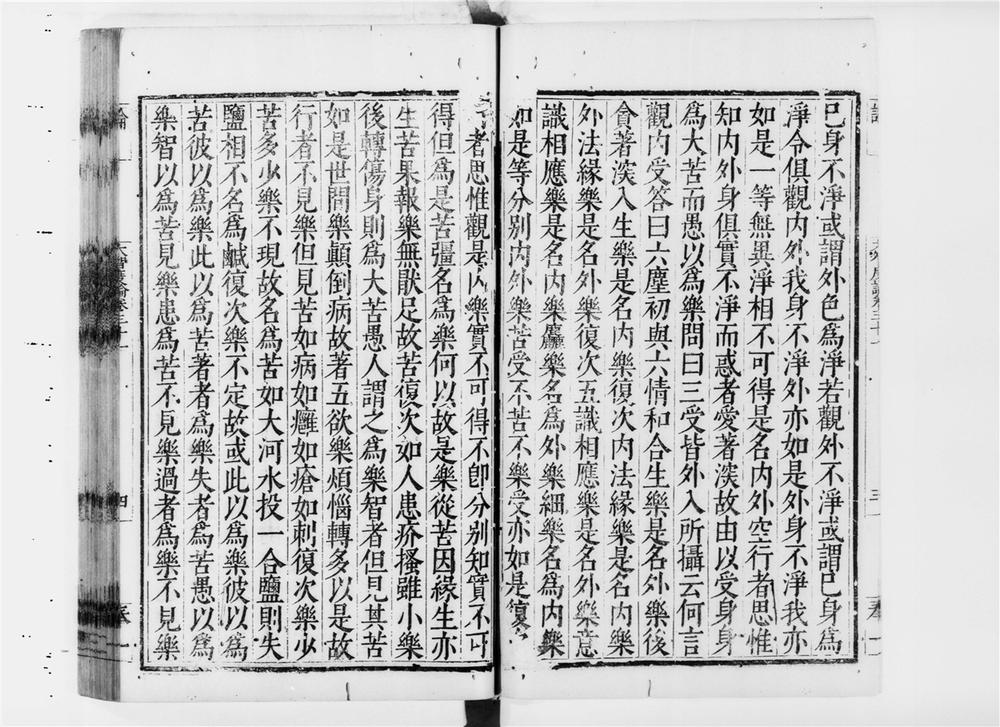 已身不淨或謂外色為淨若觀外不淨或謂已身為
淨今俱觀内外我身不淨外亦如是外身不淨我亦
如是一等無異淨相不可得是名内外空行者思惟
知内外身俱實不淨而惑者愛著湥故由以受身身
為大苦而愚以為樂問曰三受皆外入所攝云何言
觀内受答曰六塵初與六情和合生樂是名外樂後
貪著湥入生樂是名内樂復次内法緣樂是名内樂
外法緣樂是名外樂復次五識相應樂是名外樂意
識相應樂是名内樂麤樂名為外樂細樂名為内樂
如是等分别内外樂苦受不苦不樂受亦如是復
者思惟觀是内樂實不可得不即分别知實不可
得但為是苦彊名為樂何以故是樂從苦因緣生亦
生苦果報樂無猒足故苦復次如人患疥搔雖小樂
後轉傷身則為大苦愚人謂之為樂智者但見其苦
如是世間樂顛倒病故著五欲樂煩惱轉多以是故
行者不見樂但見苦如病如癰如瘡如刺復次樂少
苦多少樂不現故名為苦如大河水投一合鹽則失
鹽相不名為鹹復次樂不定故或此以為樂彼以為
苦彼以為樂此以為苦著者為樂失者為苦愚以為
樂智以為苦見樂患為苦不見樂過者為樂不見樂
論
四